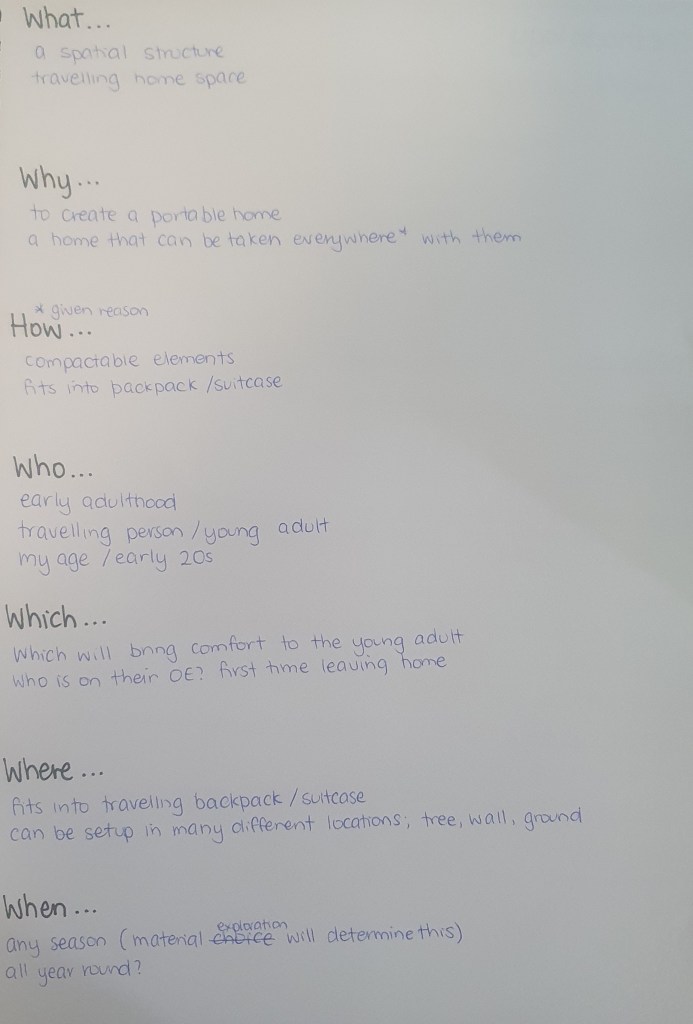 What...
a spatial structure
travelling home space
Why...
to create a portable home
a home that can be taken everywhere* with them
* given reason
How...
compactable elements
fits into backpack /suitcase
Who...
early adulthood
travelling person /young adult
my age /early 20s
Which...
Which will bring comfort to the young adult
who is on their OE? first time leaving home
Where...
fits into traveling backpack /suitcase
can be setup in many different locations; tree, wall, ground
When...
exploration
any season (material choice will determine this)
all year round?